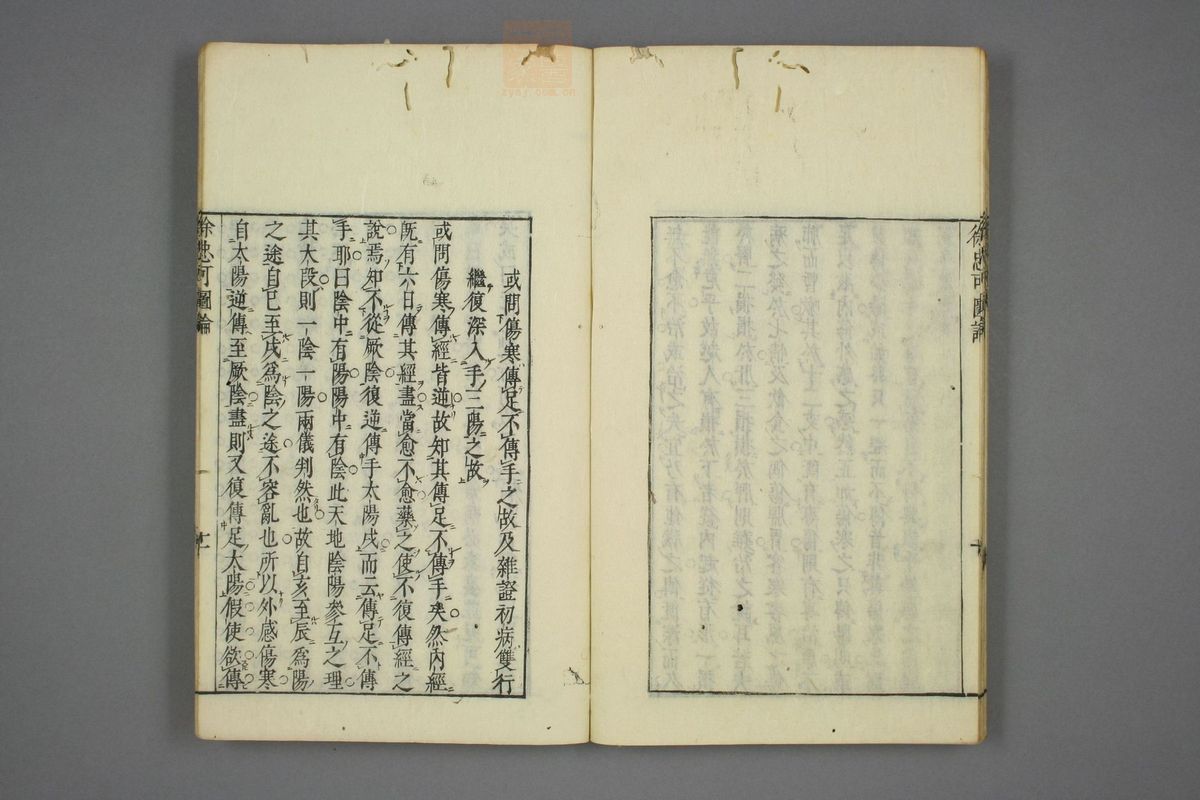 徐忠可圖論
或問傷寒傳足不傳手之故及雜證初病雙行
繼復深入手三陽之故
或問傷寒傳經皆逆故知其傳足不傳手矣然內經
既有六日傳其經盡當愈不愈藥之使不復傳經之
說焉知不從厥陰復逆傳手太陽戌而云傳足不傳
手耶曰陰中有陽陽中有陰此天地陰陽參互之理
其大段則一陰一陽兩儀判然也故自亥至辰爲陽
之途自巳至戌爲陰之途不容亂也所以外感傷寒
自太陽逆傳至厥陰盡則又復傳足太陽假使欲傳
徐忠可圖論
十一
zysj.com.cn